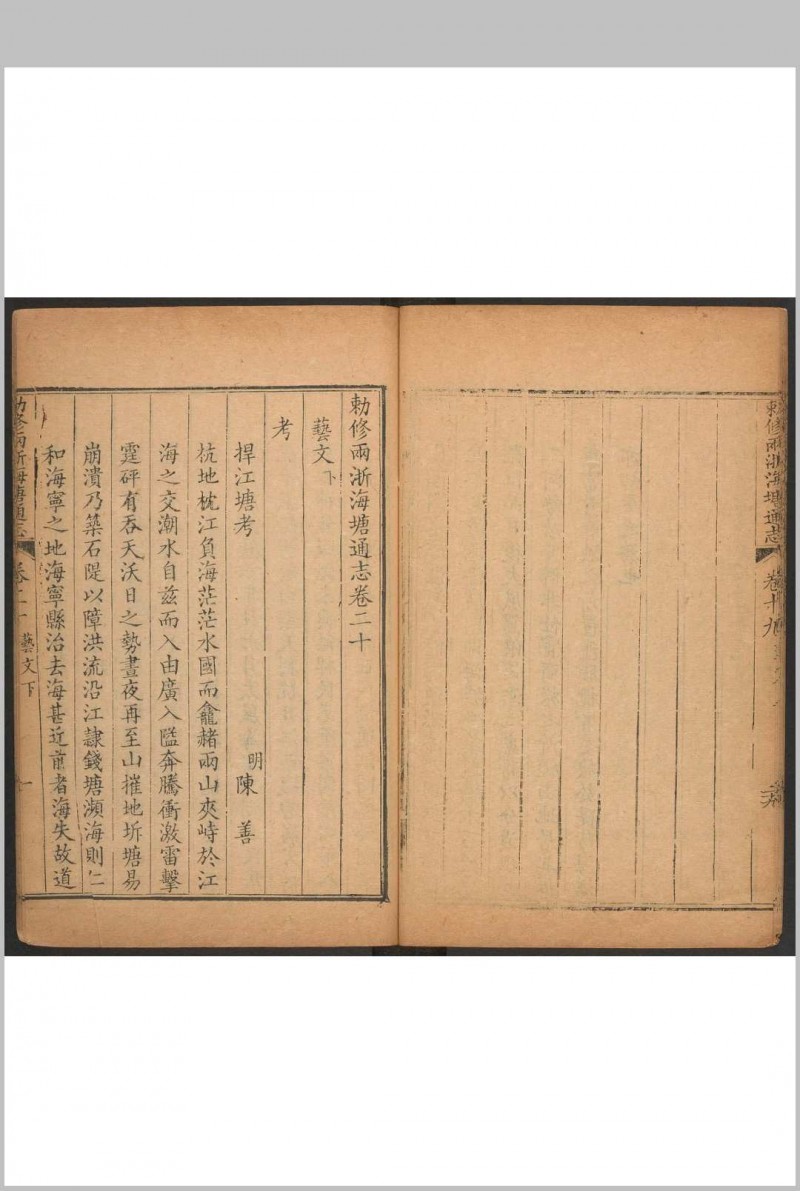 勅修兩浙海塘通志
卷十九
勅修兩浙海塘通志卷二十
藝文下
考
捍江塘考
明陳善
杭地枕江負海茫茫水國而龕赭兩山夾峙於江
海之交潮水自兹而入由廣入隘奔騰衝激雷擊
霆砰有吞天沃日之勢晝夜再至山摧地坼塘易
崩潰乃築石隄以障洪流沿江隷錢塘瀕海則仁
和海寧之地海寧縣治去海甚近前者海失故道
勅修兩浙海塘通志
卷二十
藝文下
一